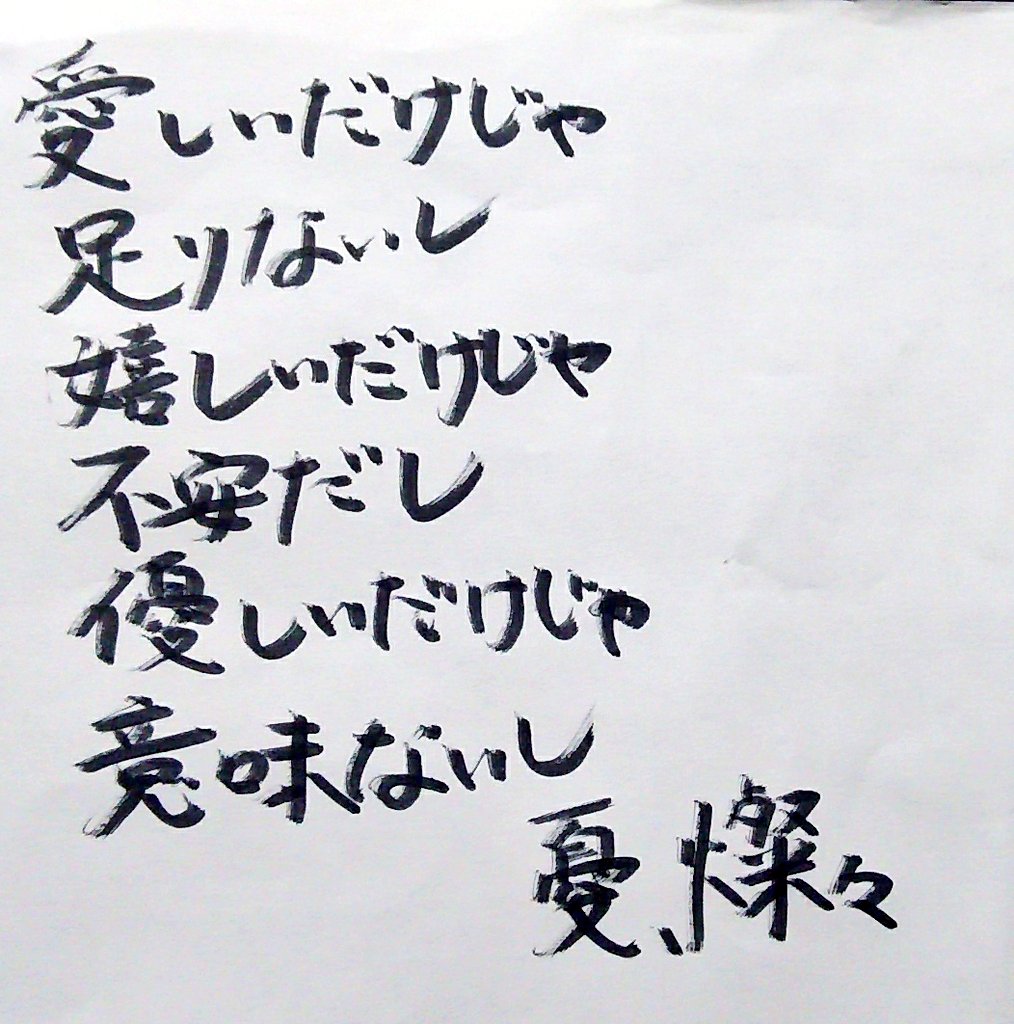 愛しいだけじゃ
足りないし
嬉しいだけじゃ
不安だし
優しいだけじゃ
意味ないし
憂、燦々